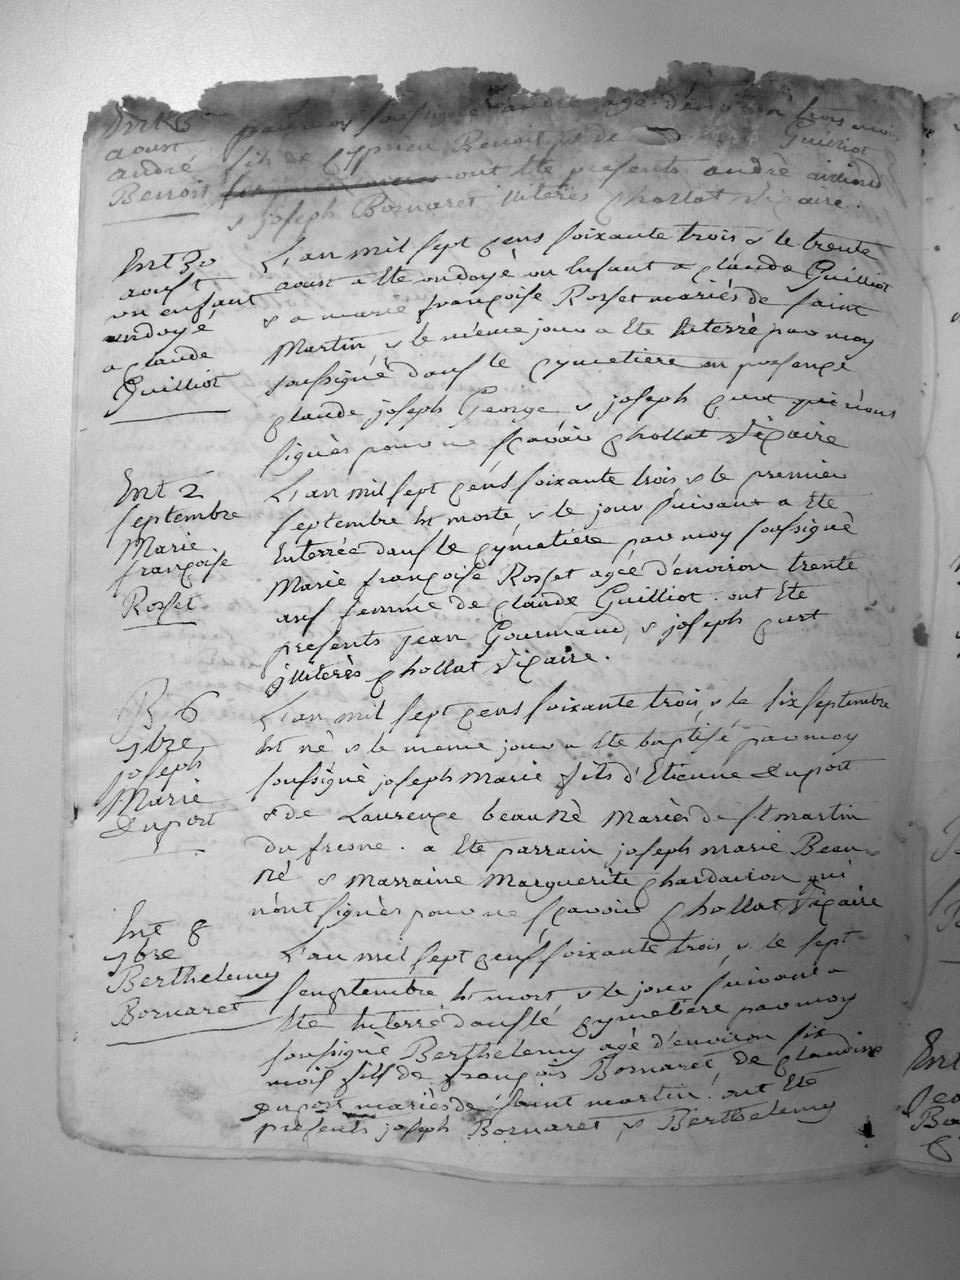 aoust
andré
Benoit
par moy soussigné andré agé d'environ trois mois
fils de Benoit & de Guilliot
ont ete presents andrè
& joseph Bornaret illiterés Chollat Vicaire.
Ent 30
aoust
un enfant
ondoyé
a claude
Guilliot
L'an mil sept cens soixante trois & le trente
aoust a ete ondoyè un Enfant a claude Guilliot
& a marie françoise Rosset mariés de saint
Martin & le même jour a Eté Enterré par moy
soussigné dans le cymetiere en presence
claude joseph George & joseph qui n'ons
signès pour ne sçavoir Chollat Vicaire
Ent 2
septembre
Marie
françoise
Rosset
L'an mil sept cens soixante trois & le premier
septembre Est morte & le jour suivant a Eté
Enterrée dans le cymetiére par moy soussignè
Marie françoise Rosset agéé d'environ trente
ans femme de claude Guilliot. ont Eté
presents jean Gourmand, & joseph
jlliterès Chollat Vicaire.
B 6
9bre
joseph
Marie
Duport
L'an mil sept cens soixante trois & le six septembre
Est né & le meme jour a Ete baptisé par moy
soussigné joseph Marie fils d'Etienne Duport
& de Laurence beauné Mariés de st martin
du fresne. a Ete parrain joseph marie Beau-
né & Marraine Marguerite Chardaison qui
n'ont signès pour ne sçavoir Chollat Vicaire
Ent 8
9bre
Berthelemy
Bornaret
L'an mil sept cens soixante trois & le sept
septembre Est mort & le jour suivant a
Eté Enterré dans le cymetiere par moy
soussignè Berthelemy agé d'environ six
mois fils de françois Bornaret, de claudine
Duport mariès de saint martin. ont Eté
presents joseph Bornaret & Berthelemy
Ent